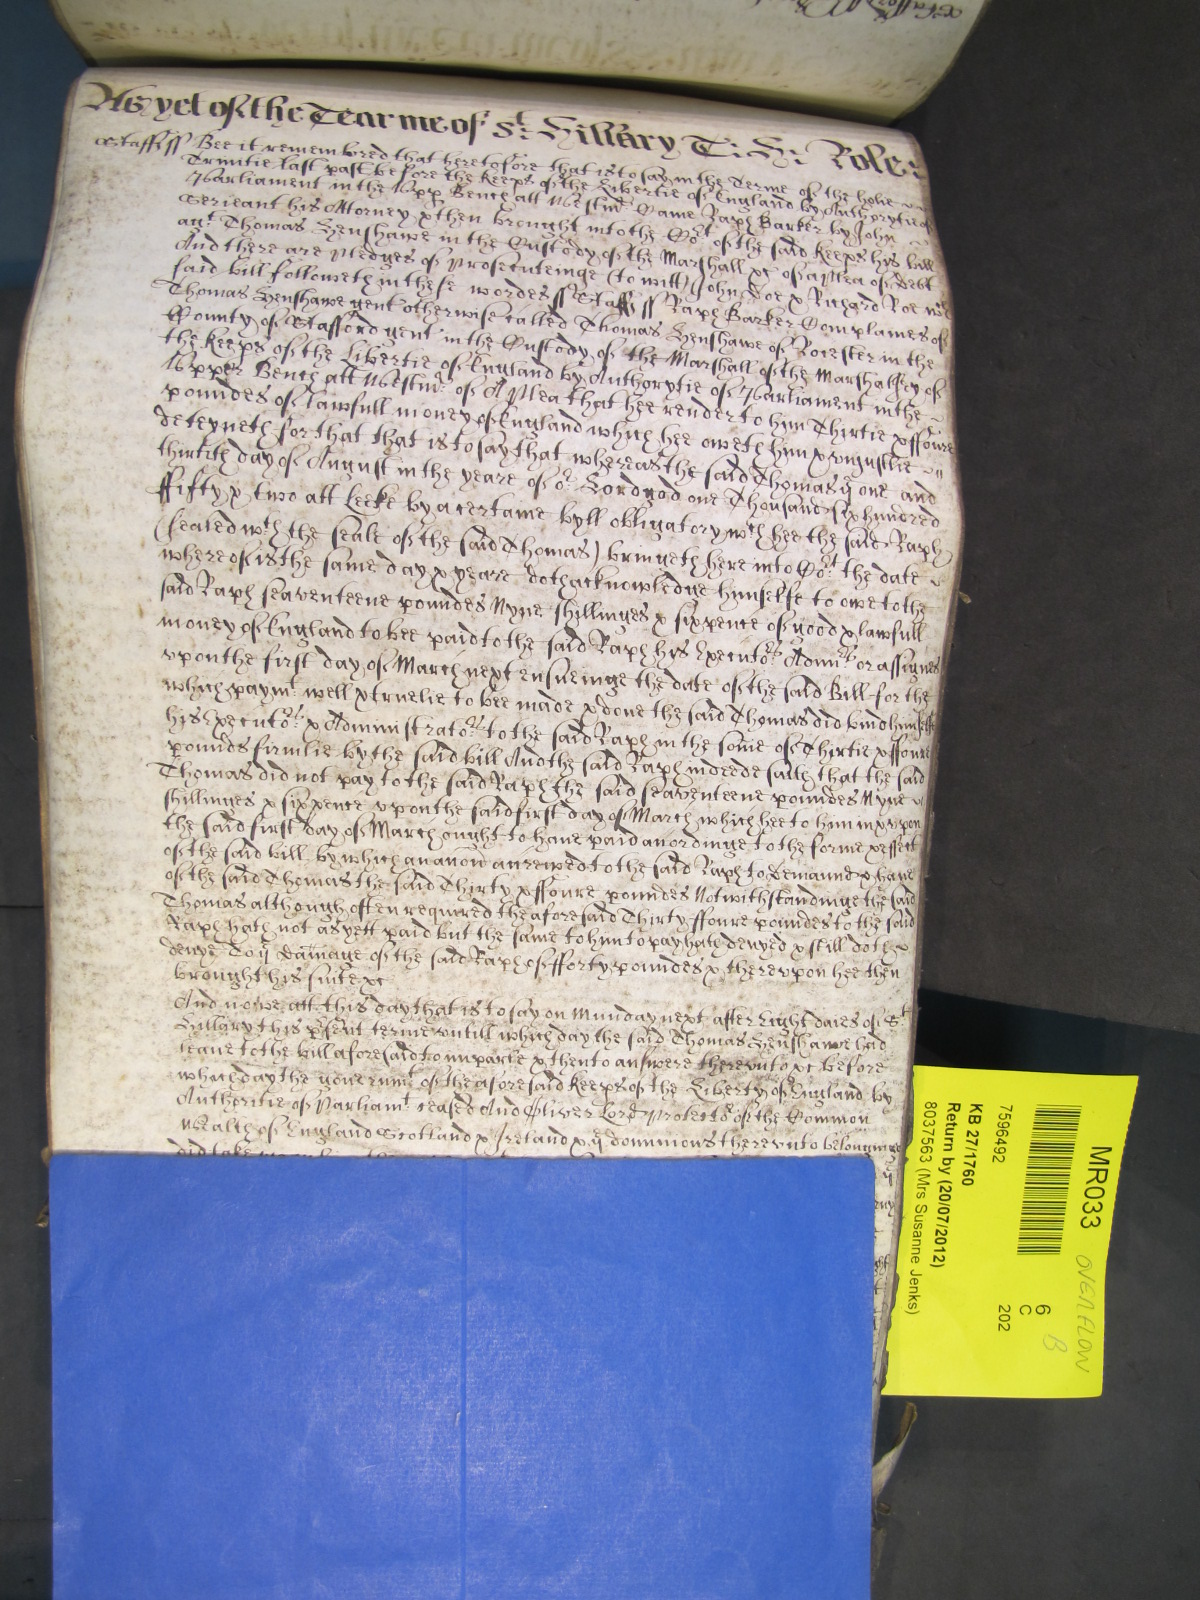 As yet of the Tearme of St: Hillary T: H: Role:
Staff ss Bee it remembred that heretofore that is to say in the Terme of the holie
Trinitie last past before the Keeps of the Libertie of England by Authorytie of
Parliament in the Upp Bench att Westmr Came Raph Barker by John
Serieant his Attorney & then brought into the Cort of the said Keeps his bill
agt Thomas Henshawe in the Custody of the Marshall &c of a Plea of debt
And there are Pledges of Prosecuteinge (to witt) John Doe & Richard Roe wch
said bill followeth in these wordes ss Staff ss Raph Barker Complaines of
Thomas Henshawe gent otherwise called Thomas Henshawe of Rocester in the
County of Stafford gent in the Custody of the Marshall of the Marshalsey of
the Keeps of the Libertie of England by Authorytie of Parliament in the
Upper Bench att Westmr of A Plea that hee render to him Thirtie & ffoure
poundes of lawfull money of England which hee oweth him & uniustlie
deteyneth for that that is to say that whereas the said Thomas ye one and
thirtith day of August in the yeare of or Lord god one Thousand six hundred
ffifty & two att Leeke by a certaine byll obligatory wch hee the said Raph
(sealed wth the seale of the said Thomas) bringeth here into Cort the date
whereof is the same day & yeare doth acknowledge himselfe to owe to the
said Raph seaventeene poundes Nyne shillinges & sixpence of good & lawfull
money of England to bee paid to the said Raph his Executors Admrs or assignes
upon the first day of March next ensueinge the date of the said Bill for the
which paymt well & truelie to bee made & done the said Thomas did bind himselfe
his Executors & Administrators to the said Raph in the some of Thirtie & ffoure
pounds firmlie by the said bill And the said Raph indeede saith that the said
Thomas did not pay to the said Raph the said seaventeene poundes Nyne
shillinges & sixpence upon the said first day of March which hee to him in & upon
the said first day of March ought to have paid accordinge to the forme & effect
of the said bill by which an accon accrewed to the said Raph to demaund & have
of the said Thomas the said Thirty & ffoure poundes Notwithstandinge the said
Thomas although often required the aforesaid Thirty ffoure poundes to the said
Raph hath not as yett paid but the same to him to pay hath denyed & still doth
denye To ye damage of the said Raph of fforty poundes & thereupon hee then
brought his suite &c
And nowe att this day that is to say on Munday next after Eight daies of St
Hillary this present terme untill which day the said Thomas Henshawe had
leave to the bill aforesaid to imparle & then to answere thereunto &c before
which day the governmt of the aforesaid Keeps of the Liberty of England by
Authoritie of Parliamt ceased And Oliver Lord Protector of the Common
Wealth of England Scotland & Ireland & ye dominions thereunto belonginge
did take
MR033
OVERFLOW
B
6
C
202
7596492
KB 27/1760
Return by (20/07/2012)
8037563 (Mrs Susanne Jenks)